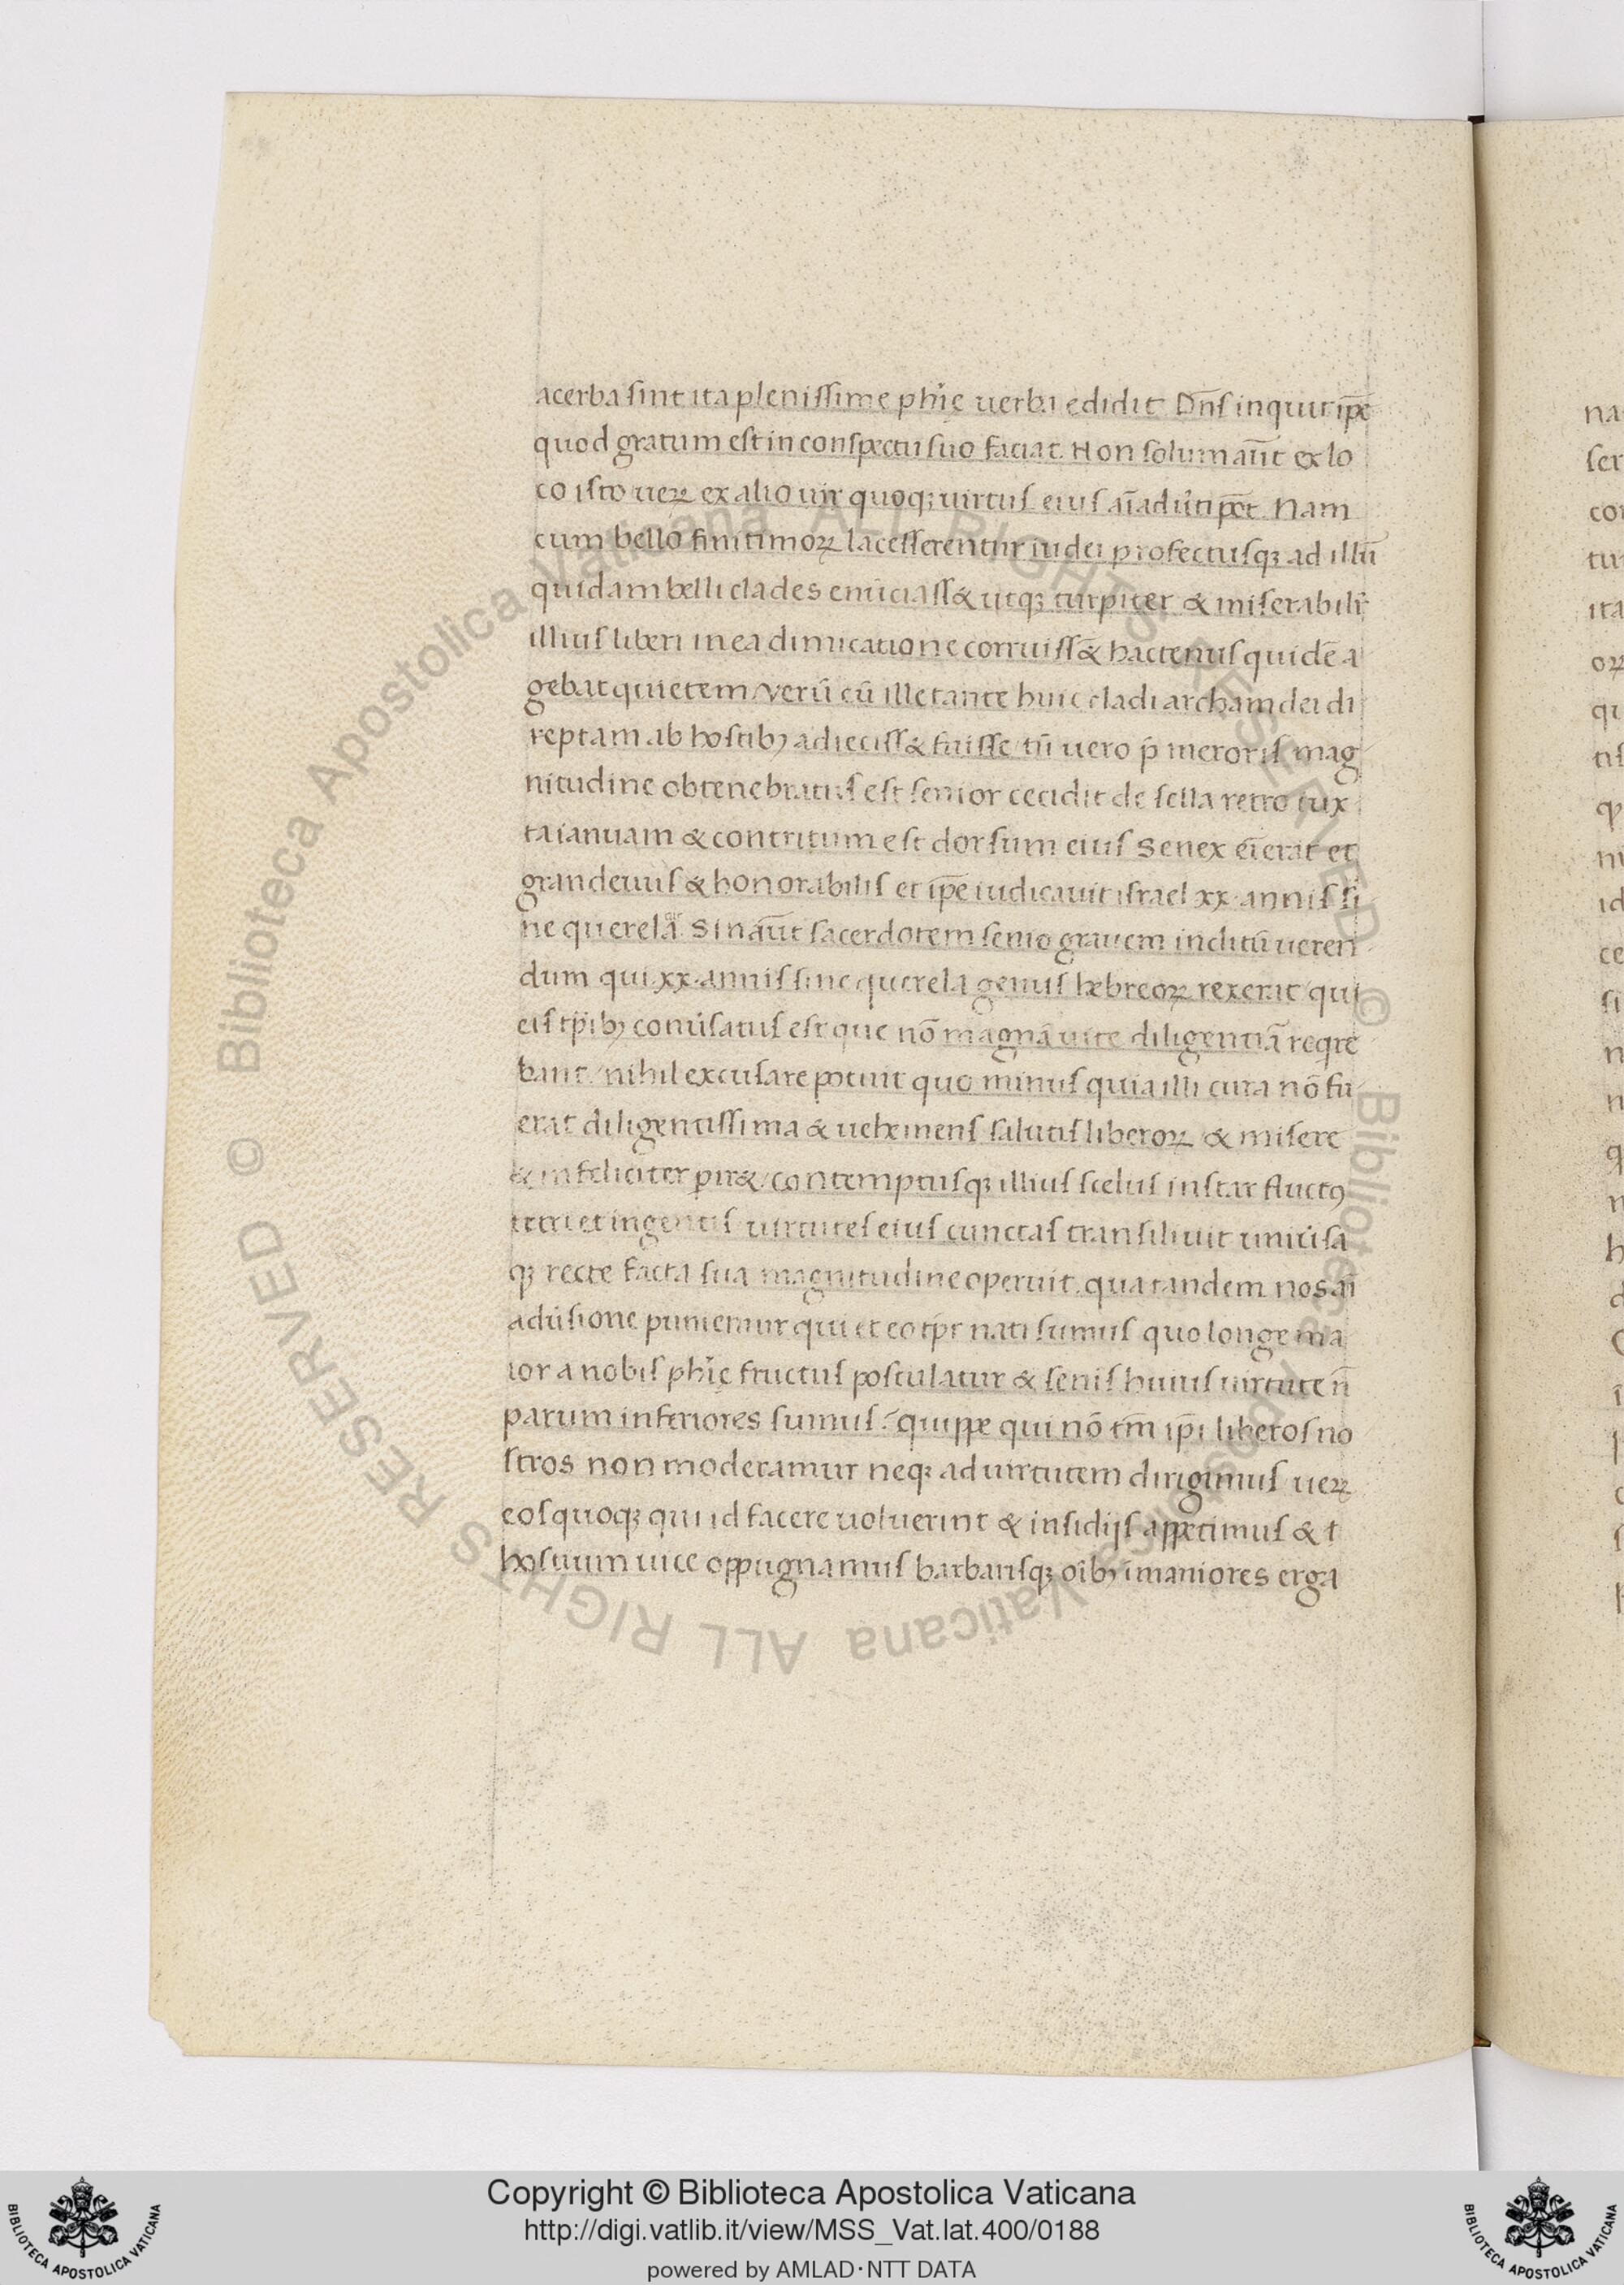 acerba sint ita plenissime phīe uerba edidit Dn̄s inquit ip̄e
quod gratum est in conspectu suo faciat. Non solum aūt ex lo
co isto ueꝝ ex alio uir quoqꝫ uirtus eius aīaduʼti pōt. Nam
cum bello finitimoꝝ lacesserentur iudei profectusqꝫ ad illū
quidam belli clades enūciass& utqꝫ turpiter & miserabilr̄
illius liberi in ea dimicatione corruiss&̄ hactenus quidē a
gebat quietem/verū cū ille tante huic cladi archam dei di
reptam ab hostibꝫ adieciss& fuisse/tū uero p̄ meroris mag
nitudine obtenebratus est senior cecidit de sella retro iux
ta ianuam & contritum est dorsum eius Senex eī erat et
grandeuus & honorabilis et ip̄e iudicauit israel xx. annis si
ne querela. Sin aūt sacerdotem senio grauem inclitū ueren
dum qui xx. annis sine querela genus hebreoꝝ rexerat/qui
eis tp̄ibꝫ conuʼsatus est que nō magnā uite diligentiā reqre
bant/nihil excusare potuit quo minus quia illi cura nō fu
erat diligentissima & uehemens salutis liberoꝝ & misere
& infeliciter pir&/contemptusqꝫ illius scelus instar fluctꝯ
tetri et ingentis uirtutes eius cunctas transiliuit uniuʼsa
qꝫ recte facta sua magnitudine operuit. qua tandem nos aī
aduʼsione puniemur qui et eo tp̄r nati sumus quo longe ma
ior a nobis phīe fructus postulatur & senis huius uirtute n̄
parum inferiores sumus? quippe qui nō tm̄ ip̄i liberos no
stros non moderamur neqꝫ ad uirtutem dirigimus ueꝝ
eos quoqꝫ qui id facere uoluerint & insidijs appetimus &
hostium uice oppugnamus barbarisqꝫ oībꝫ imaniores erga
© Biblioteca Apostolica Vaticana ALL RIGHTS RESERVED
© Biblioteca Apostolica Vaticana ALL RIGHTS RESERVED
Copyright © Biblioteca Apostolica Vaticana
http://digi.vatlib.it/view/MSS_Vat.lat.400/0188
powered by AMLAD·NTT DATA
BIBLIOTECA APOSTOLICA VATICANA
BIBLIOTECA APOSTOLICA VATICANA